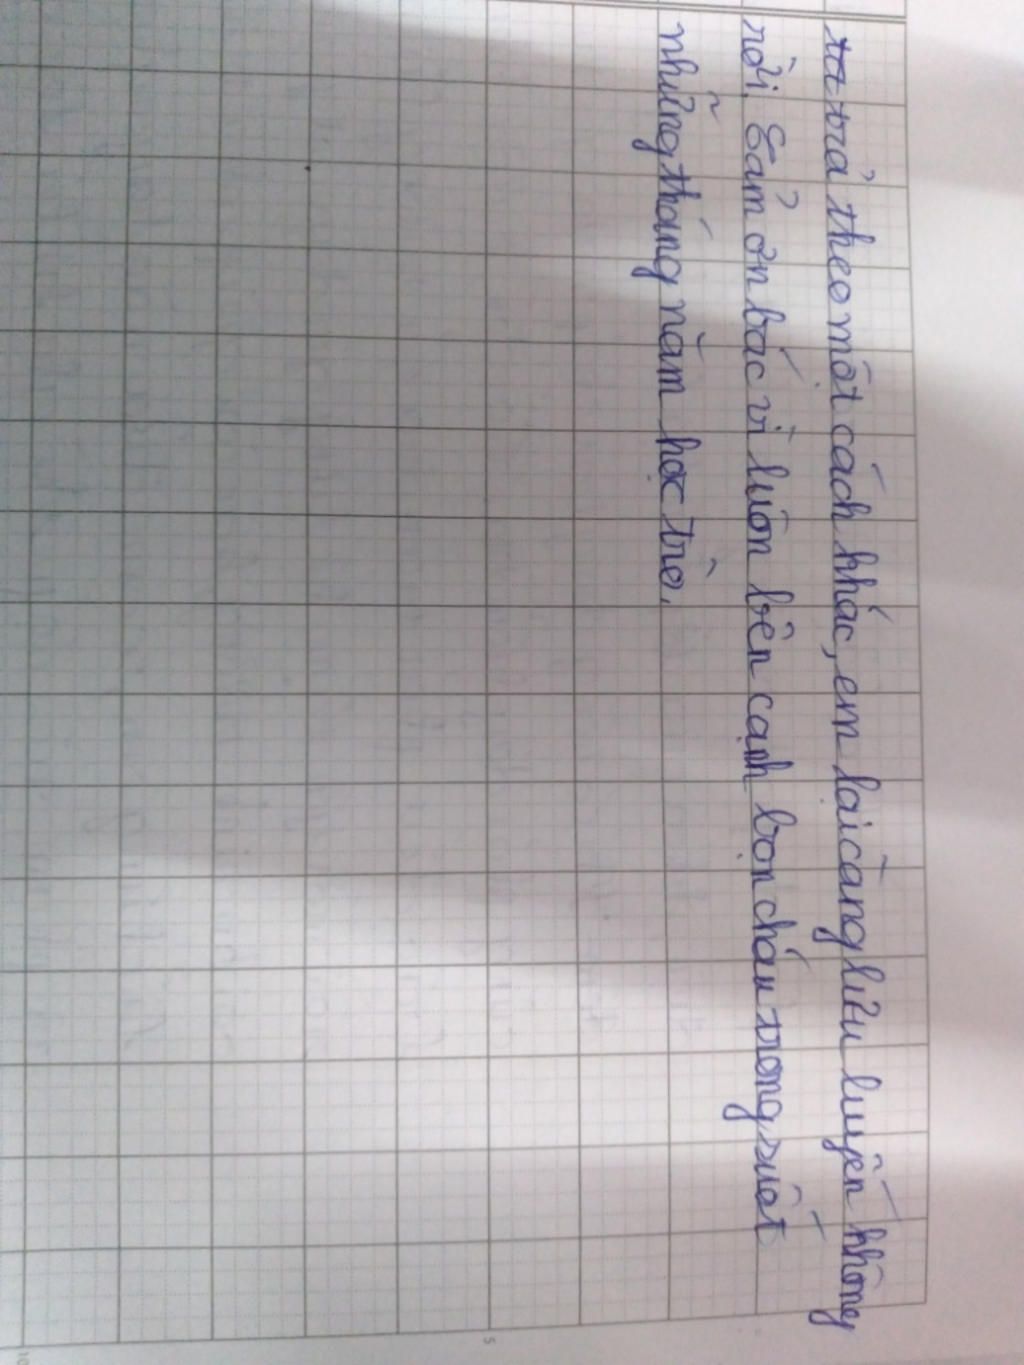 ta trả theo một cách khác, em lại càng lưu luyến không
rời. Cảm ơn bác vì luôn bên cạnh bọn cháu trong suốt
những tháng năm học trò.
5
10